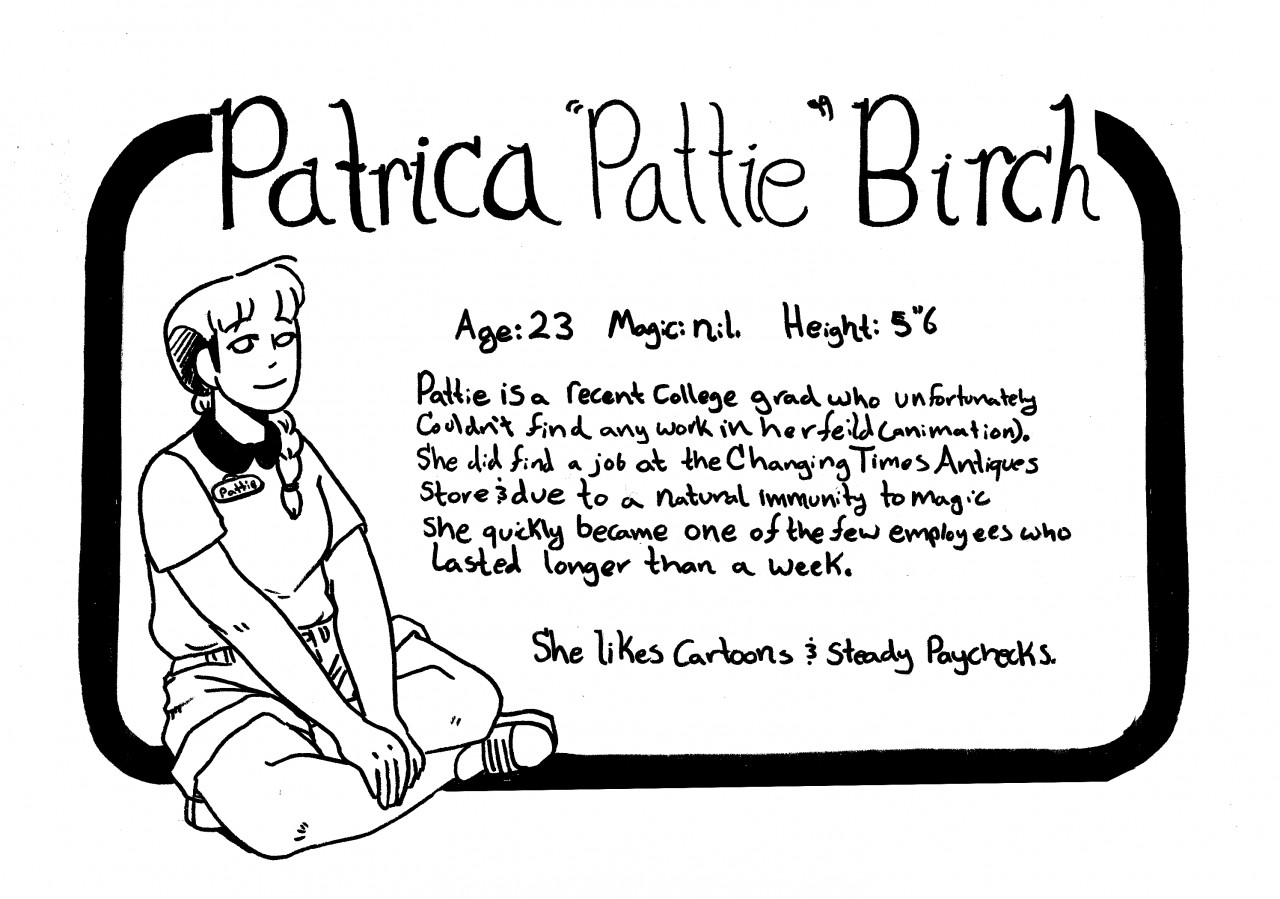 Patrica "Pattie" Birch
Age: 23 Magic: nil. Height: 5"6
Pattie is a recent College grad who unfortunately
Couldn't find any work in her feild (animation).
She did find a job at the Changing Times Antiques
Store & due to a natural immunity to magic
She quickly became one of the few employees who
Lasted longer than a week.
Pattie
She likes Cartoons & Steady Paychecks.